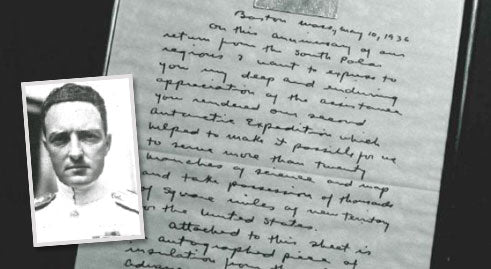 Boston Mass, May 10, 1936
On this anniversary of our
return from the South Polar
regions I want to express to
you my deep and enduring
appreciation of the assistance
you rendered our second
Antarctic Expedition which
helped to make it possible for us
to serve more than twenty
branches of science and map
and take possession of thousands
of square miles of new territory
for the United States.
Attached to this sheet is
autographed piece of
insulation from the
Advance